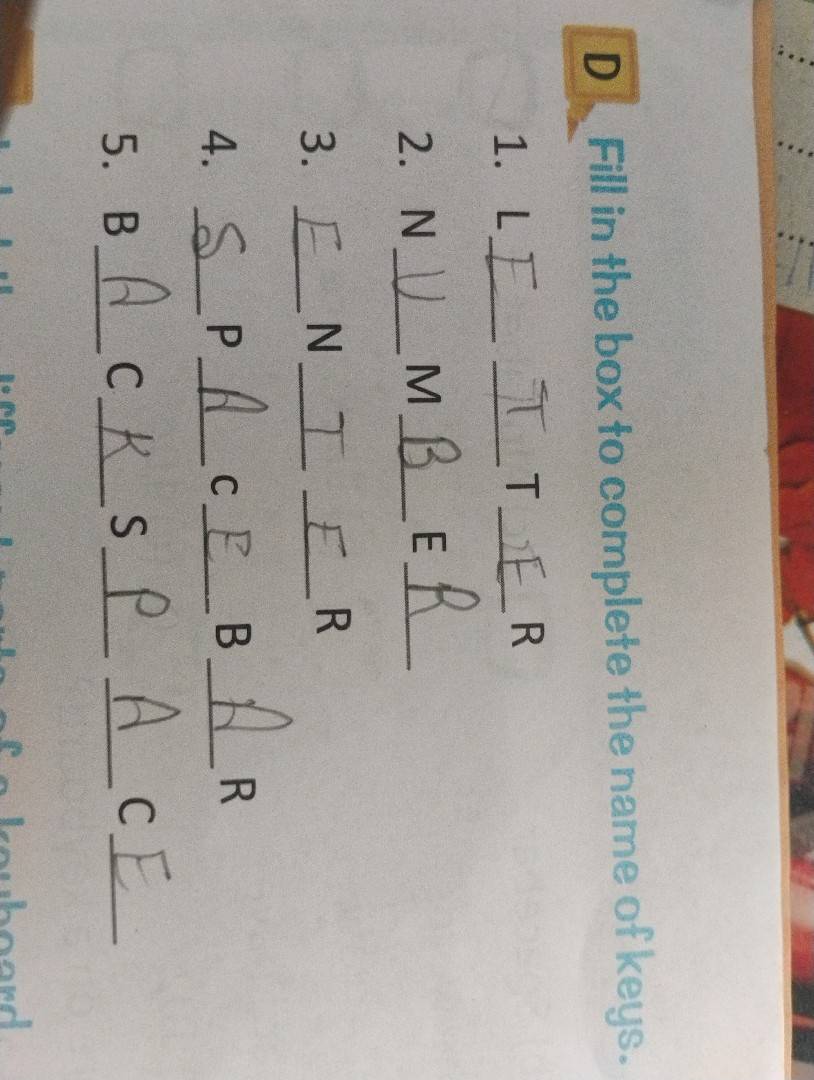 D Fill in the box to complete the name of keys.
1. L E T T E R
2. N U M B E R
3. E N T E R
4. S P A c E B A R
5. B A C K S P A C E